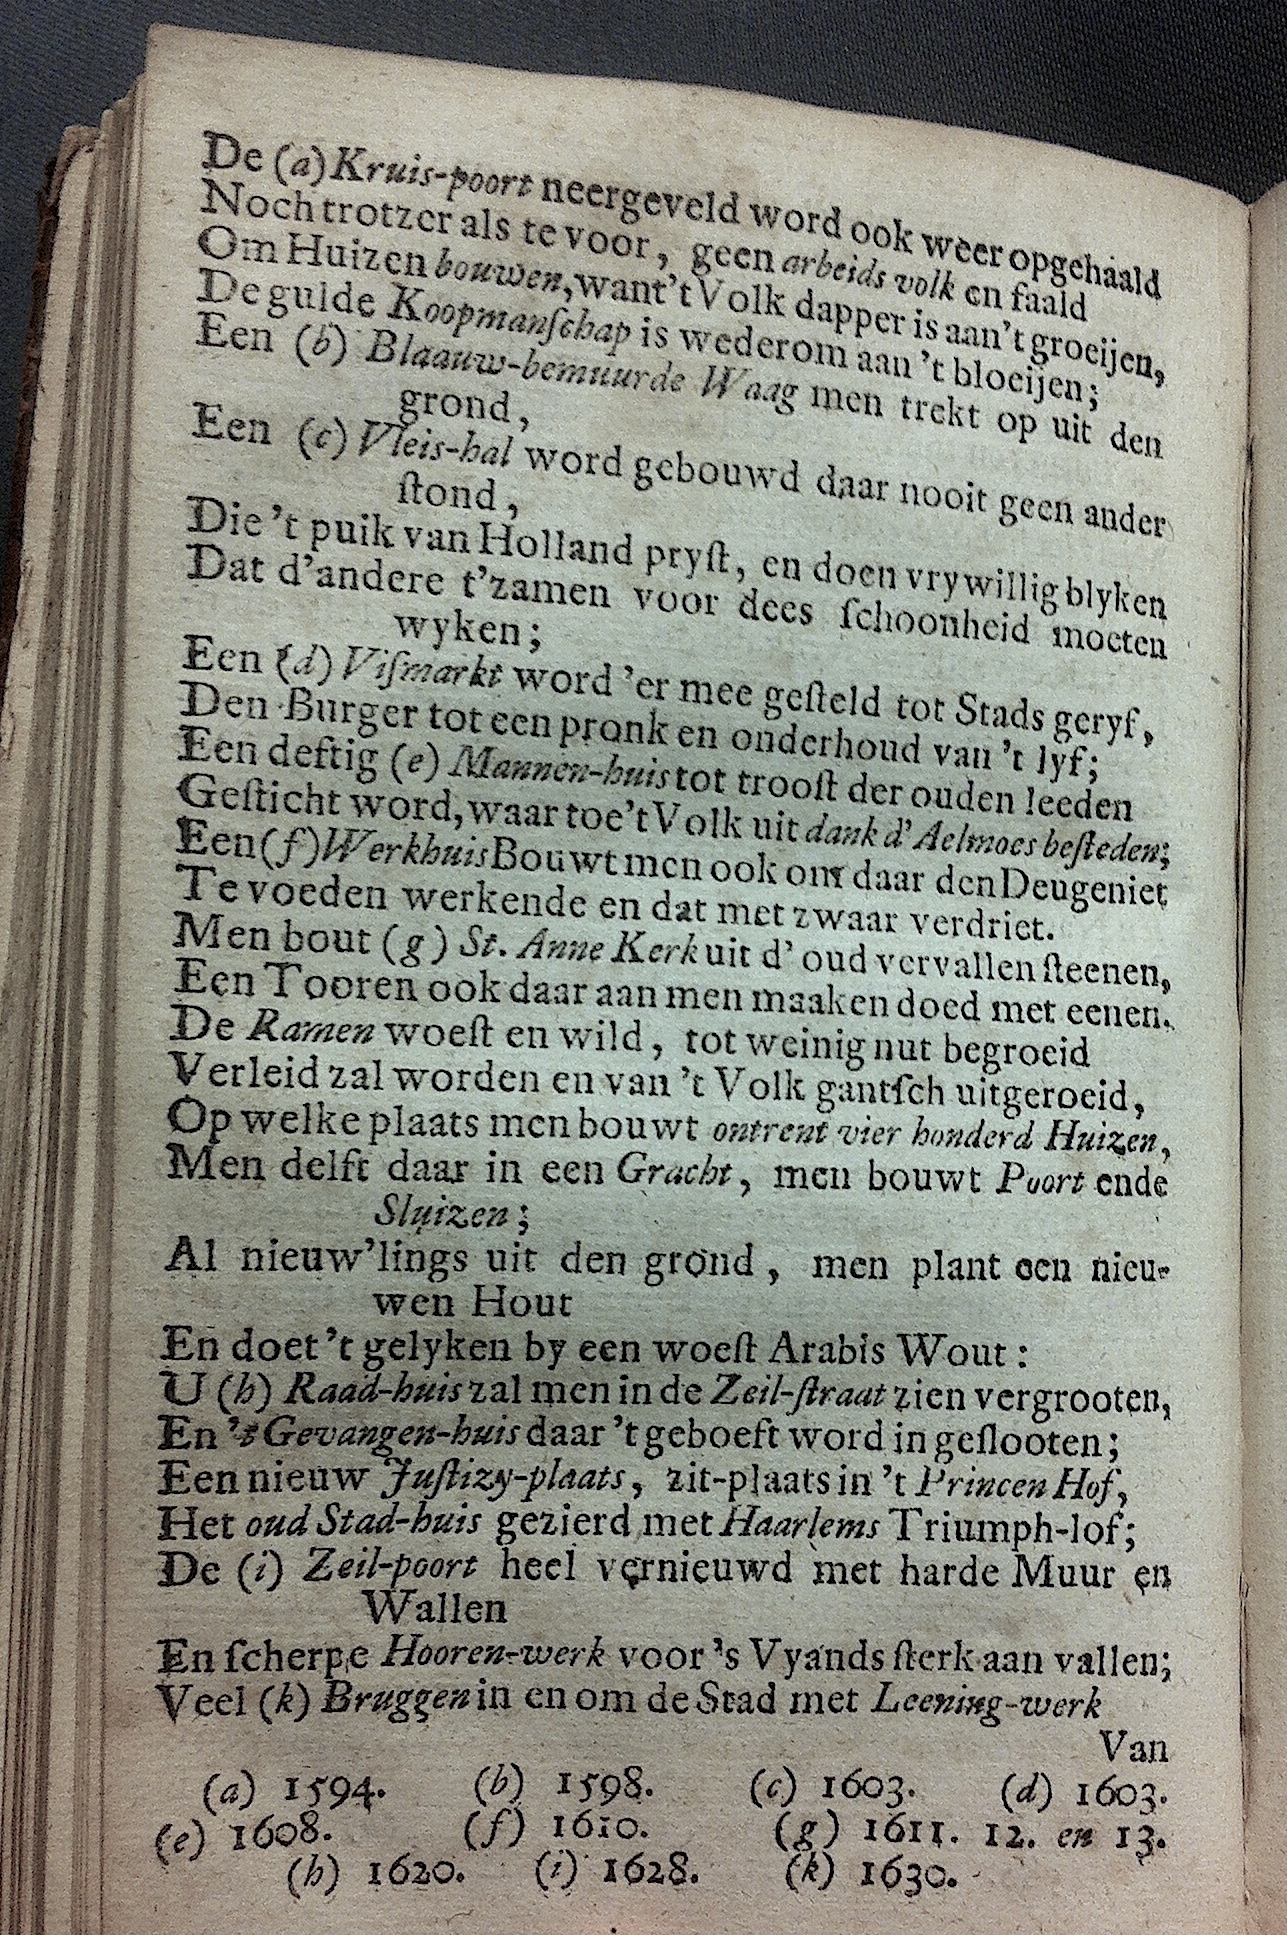 De (a) Kruis-poort neergeveld word ook weer opgehaald
Noch trotzer als te voor, geen arbeids volk en faald
Om Huizen bouwen, want 't Volk dapper is aan 't groeijen,
De gulde Koopmanſchap is wederom aan 't bloeijen;
Een (b) Blaauw-bemuurde Waag men trekt op uit den
grond,
Een (c) Vleis-hal word gebouwd daar nooit geen ander
ſtond,
Die 't puik van Holland pryſt, en doen vrywillig blyken
Dat d'andere t'zamen voor dees ſchoonheid moeten
wyken;
Een (d) Viſmarkt word 'er mee geſteld tot Stads geryf,
Den Burger tot een pronk en onderhoud van 't lyf;
Een deftig (e) Mannen-huis tot trooſt der ouden leeden
Geſticht word, waar toe 't Volk uit dank d' Aelmoes beſteden;
Een (f) Werkhuis Bouwt men ook om daar den Deugeniet
Te voeden werkende en dat met zwaar verdriet.
Men bout (g) St. Anne Kerk uit d' oud vervallen ſteenen,
Een Tooren ook daar aan men maaken doed met eenen.
De Ramen woeſt en wild, tot weinig nut begroeid
Verleid zal worden en van 't Volk gantſch uitgeroeid,
Op welke plaats men bouwt ontrent vier honderd Huizen,
Men delft daar in een Gracht, men bouwt Poort ende
Sluizen;
Al nieuw'lings uit den grond, men plant een nieu-
wen Hout
En doet 't gelyken by een woeſt Arabis Wout:
U (h) Raad-huis zal men in de Zeil-ſtraat zien vergrooten,
En 't Gevangen-huis daar 't geboeft word in geſlooten;
Een nieuw Juſtizy-plaats, zit-plaats in 't Princen Hof,
Het oud Stad-huis gezierd met Haarlems Triumph-lof;
De (i) Zeil-poort heel vernieuwd met harde Muur en
Wallen
En ſcherpe Hooren-werk voor 's Vyands ſterk aan vallen;
Veel (k) Bruggen in en om de Stad met Leening-werk
Van
(a) 1594. (b) 1598. (c) 1603. (d) 1603.
(e) 1608. (f) 1610. (g) 1611. 12. en 13.
(h) 1620. (i) 1628. (k) 1630.